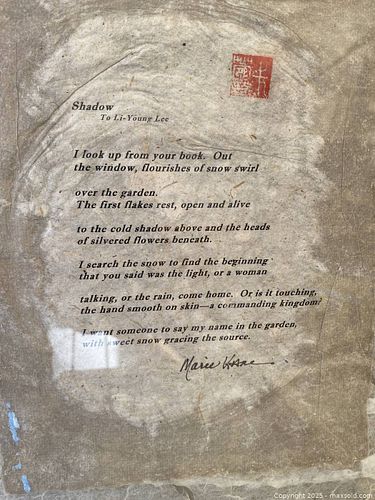 Shadow
To Li-Young Lee
I look up from your book. Out
the window, flourishes of snow swirl
over the garden.
The first flakes rest, open and alive
to the cold shadow above and the heads
of silvered flowers beneath.
I search the snow to find the beginning
that you said was the light, or a woman
talking, or the rain, come home. Or is it touching,
the hand smooth on skin—a commanding kingdom?
I want someone to say my name in the garden,
with sweet snow gracing the source.
Marie
Copyright 2025 - maxsold.com